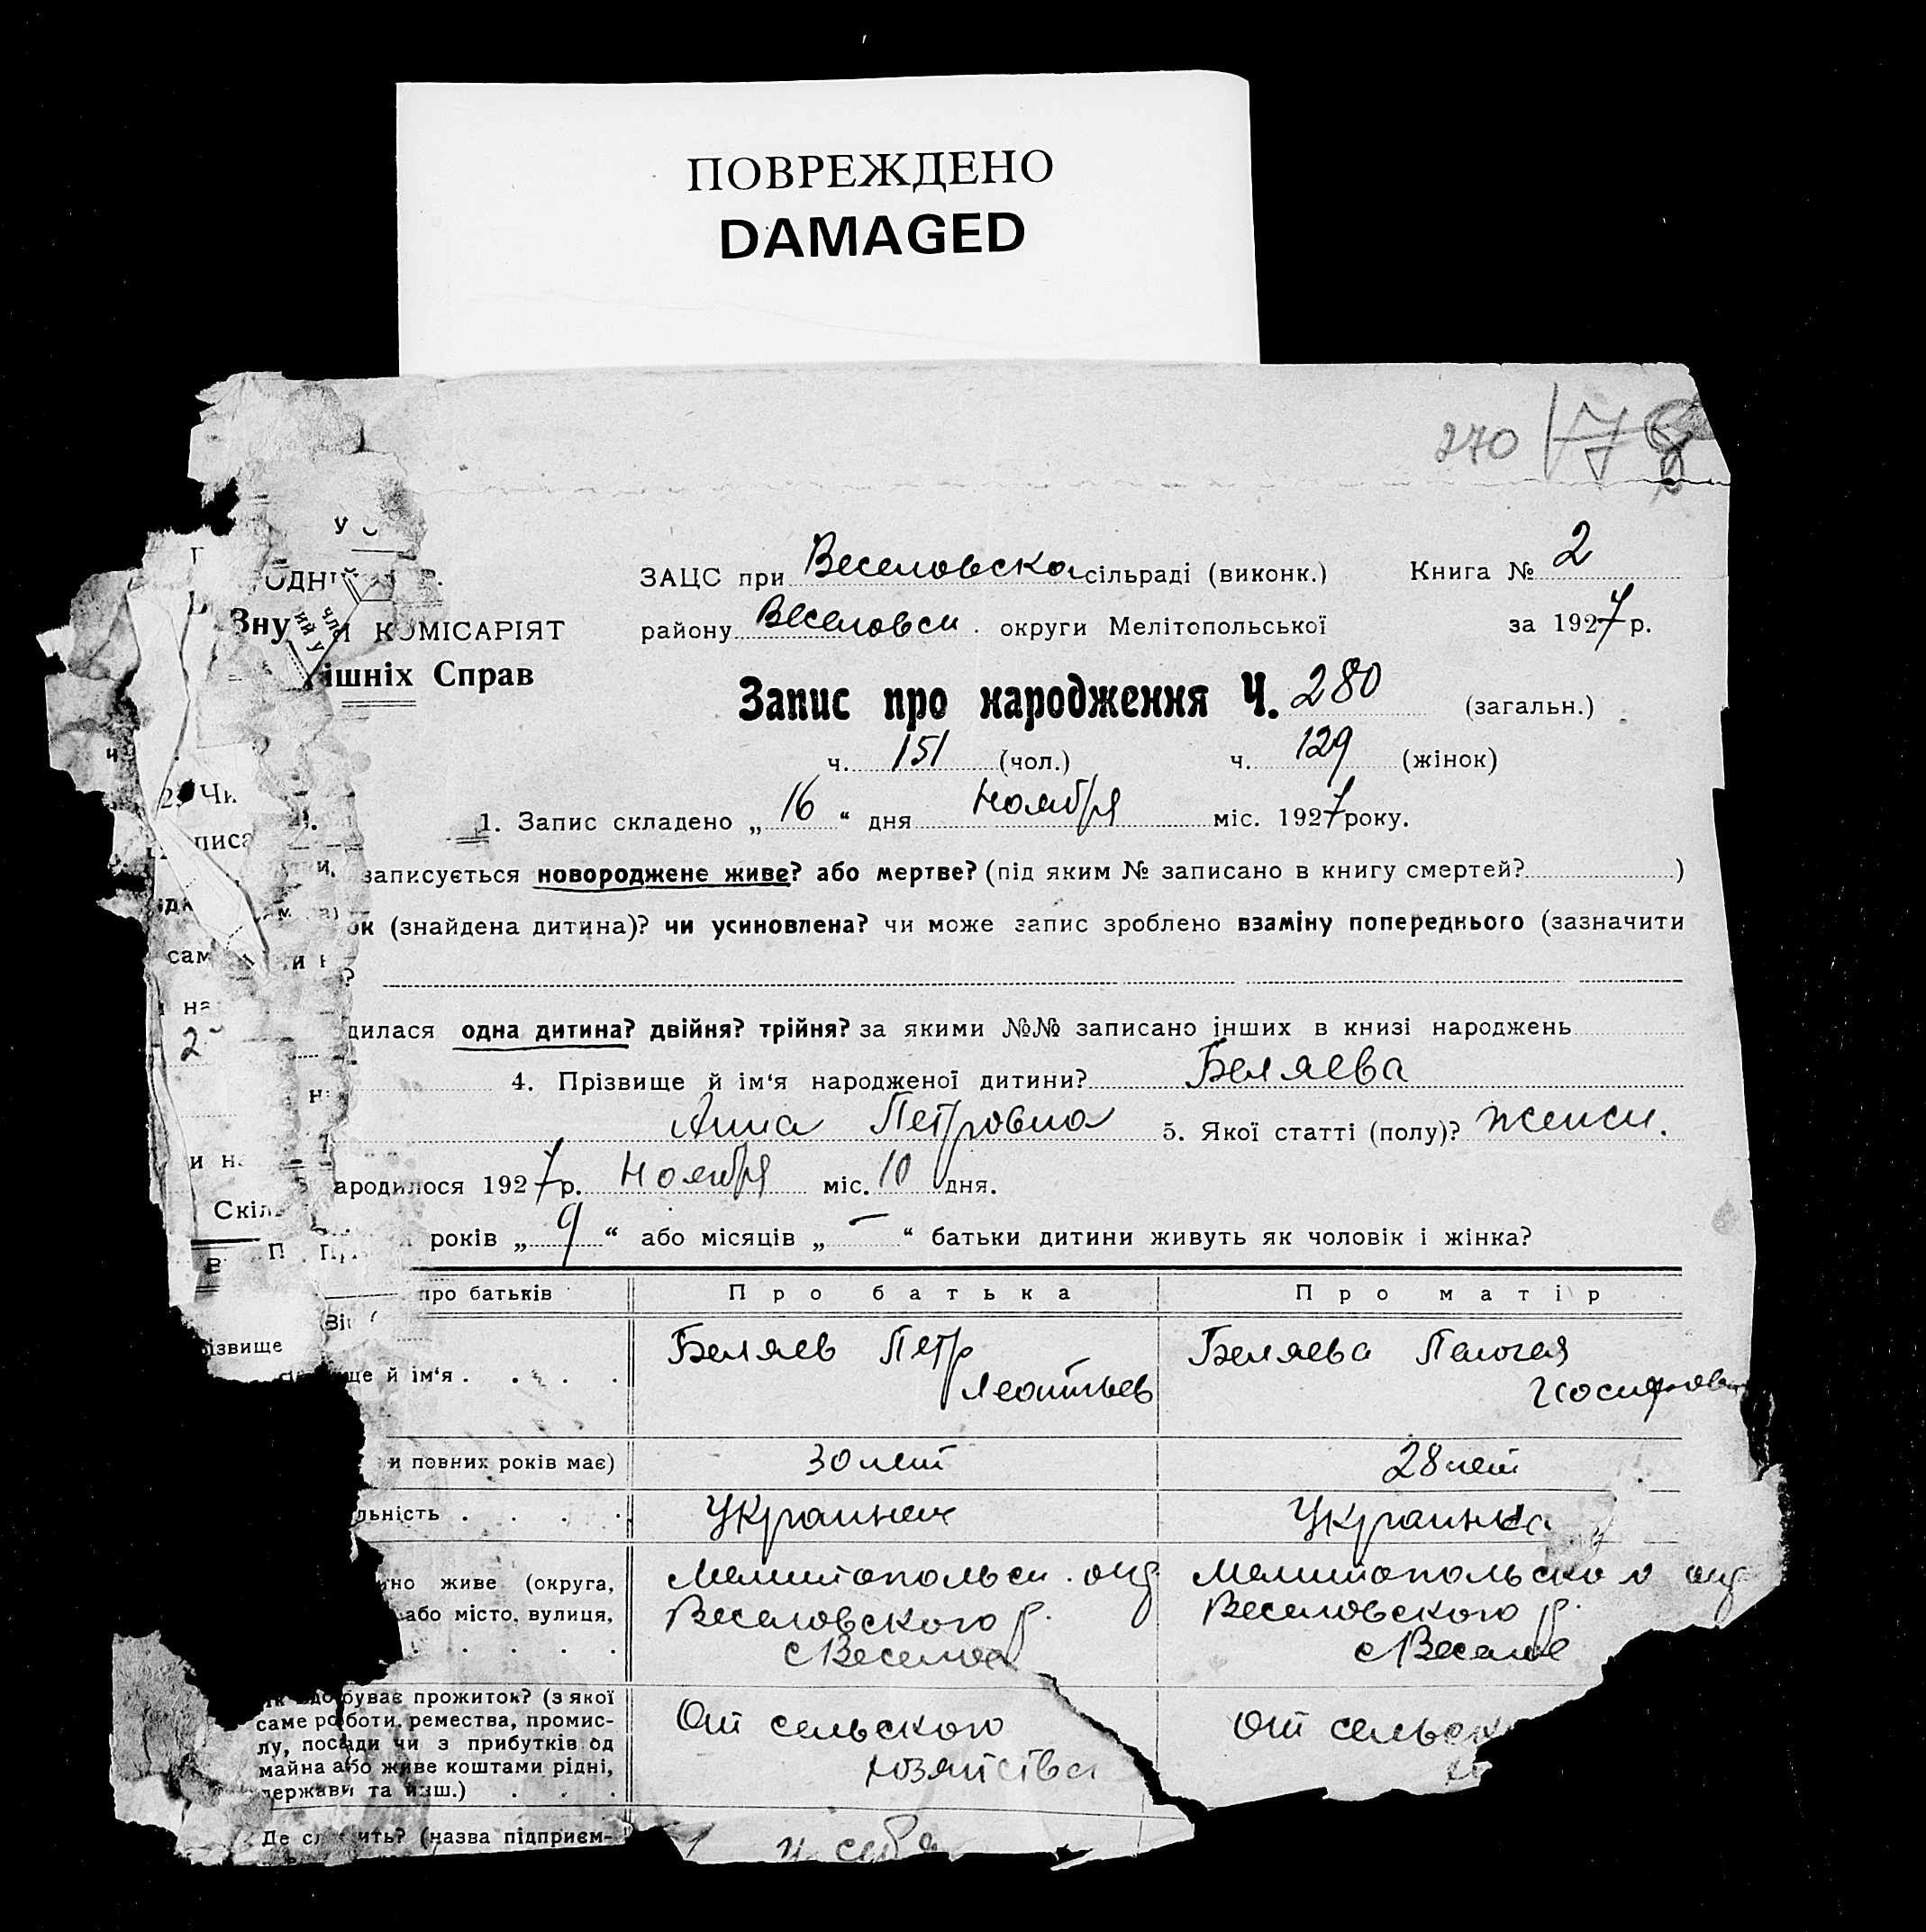 ПОВРЕЖДЕНО
DAMAGED
270 178
ЗАЦС при Веселовской сільраді (виконк.) Книга № 2
КОМІСАРІЯТ району Веселовск. округи Мелітопольської за 1927 р.
Зну
ішніх Справ
Запис про народження Ч. 280 (загальн.)
ч. 151 (чол.) ч. 129 (жінок)
1. Запис складено „ 16 “ дня ноября міс. 1927 року.
записується новороджене живе? або мертве? (під яким № записано в книгу смертей? )
ок (знайдена дитина)? чи усиновлена? чи може запис зроблено взаміну попереднього (зазначити
?
дилася одна дитина? двійня? трійня? за якими №№ записано інших в книзі народжень
4. Прізвище й ім‘я народженої дитини? Беляева
Анна Петровна 5. Якої статті (полу)? женск.
ародилося 1927 р. Ноября міс. 10 дня.
Скіль
років „ 9 “ або місяців „ — “ батьки дитини живуть як чоловік і жінка?
про батьків Про батька Про матір
ізвище
ще й ім‘я . . . . . Беляев Петр Леонтьев Беляева Пелогея Иосифов
и повних років має) 30 лет 28 лет
льність . . . . Украинец Украинка
но живе (округа, Мелитопольск. окр Мелитопольского окр
або місто, вулиця, Веселовского р. Веселовского р.
. . . . . с Веселое с Веселое
буває прожиток? (з якої
саме роботи, ремества, промис-
лу, посади чи з прибутків од
майна або живе коштами рідні,
держави та инш.) . . .
От сельского От сельск
хозяйства
Де служить? (назва підприєм-